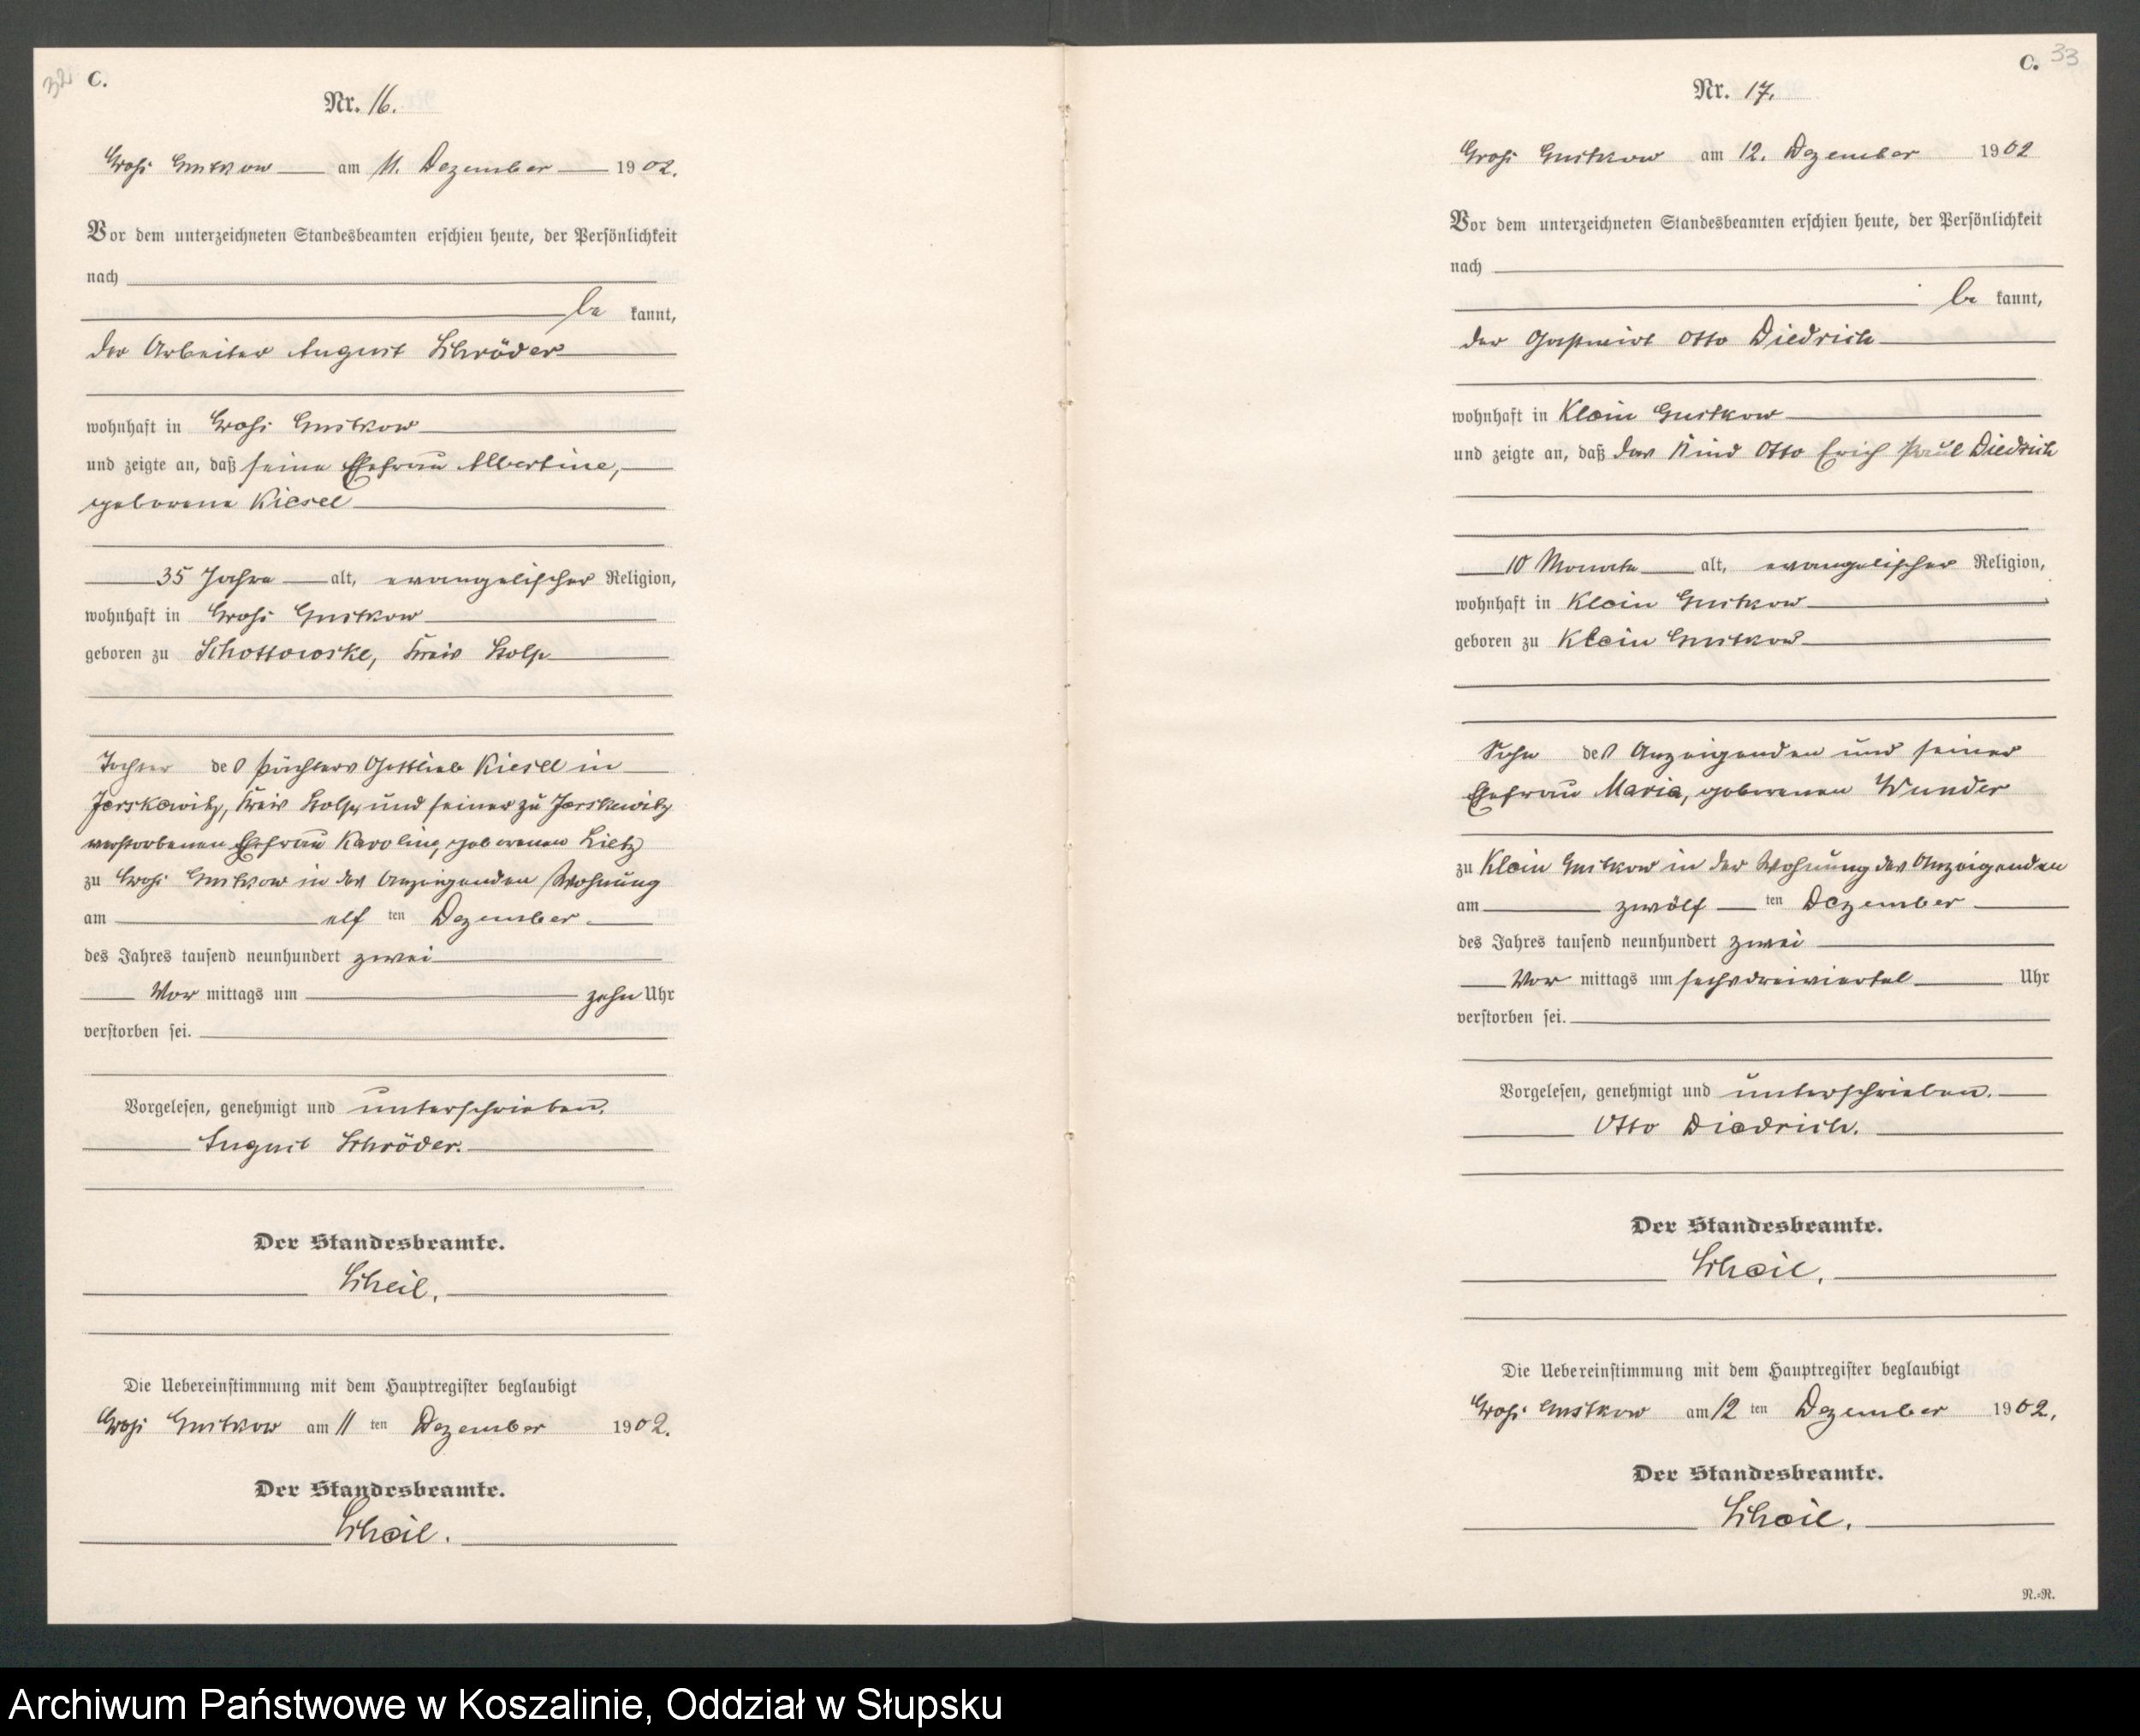 32 C.
Nr. 16.
Groß Gustkow am 11. Dezember 1902.
Vor dem unterzeichneten Standesbeamten erschien heute, der Persönlichkeit
nach
be kannt,
der Arbeiter August Schröder
wohnhaft in Groß Gustkow
und zeigte an, daß seine Ehefrau Albertine,
geborene Kiesel
35 Jahre alt, evangelischer Religion,
wohnhaft in Groß Gustkow
geboren zu Schottowske, Kreis Stolp
Tochter des Pächters Gottlieb Kiesel in
Jerskewitz, Kreis Stolp, und seiner zu Jerskewitz
verstorbenen Ehefrau Karoline, geborenen Lietz
zu Groß Gustkow in des Anzeigenden Wohnung
am elf ten Dezember
des Jahres tausend neunhundert zwei
Vor mittags um zehn Uhr
verstorben sei.
Vorgelesen, genehmigt und unterschrieben.
August Schröder.
Der Standesbeamte.
Scheil.
Die Uebereinstimmung mit dem Hauptregister beglaubigt
Groß Gustkow am 11 ten Dezember 1902.
Der Standesbeamte.
Scheil.
C. 33
Nr. 17.
Groß Gustkow am 12. Dezember 1902
Vor dem unterzeichneten Standesbeamten erschien heute, der Persönlichkeit
nach
be kannt,
der Gastwirt Otto Diedrich
wohnhaft in Klein Gustkow
und zeigte an, daß das Kind Otto Erich Paul Diedrich
10 Monate alt, evangelischer Religion,
wohnhaft in Klein Gustkow
geboren zu Klein Gustkow
Sohn des Anzeigenden und seiner
Ehefrau Maria, geborenen Wunder
zu Klein Gustkow in der Wohnung des Anzeigenden
am zwölf ten Dezember
des Jahres tausend neunhundert zwei
Vor mittags um sechsdreiviertel Uhr
verstorben sei.
Vorgelesen, genehmigt und unterschrieben.
Otto Diedrich.
Der Standesbeamte.
Scheil.
Die Uebereinstimmung mit dem Hauptregister beglaubigt
Groß Gustkow am 12 ten Dezember 1902.
Der Standesbeamte.
Scheil.
N.-R.
Archiwum Państwowe w Koszalinie, Oddział w Słupsku